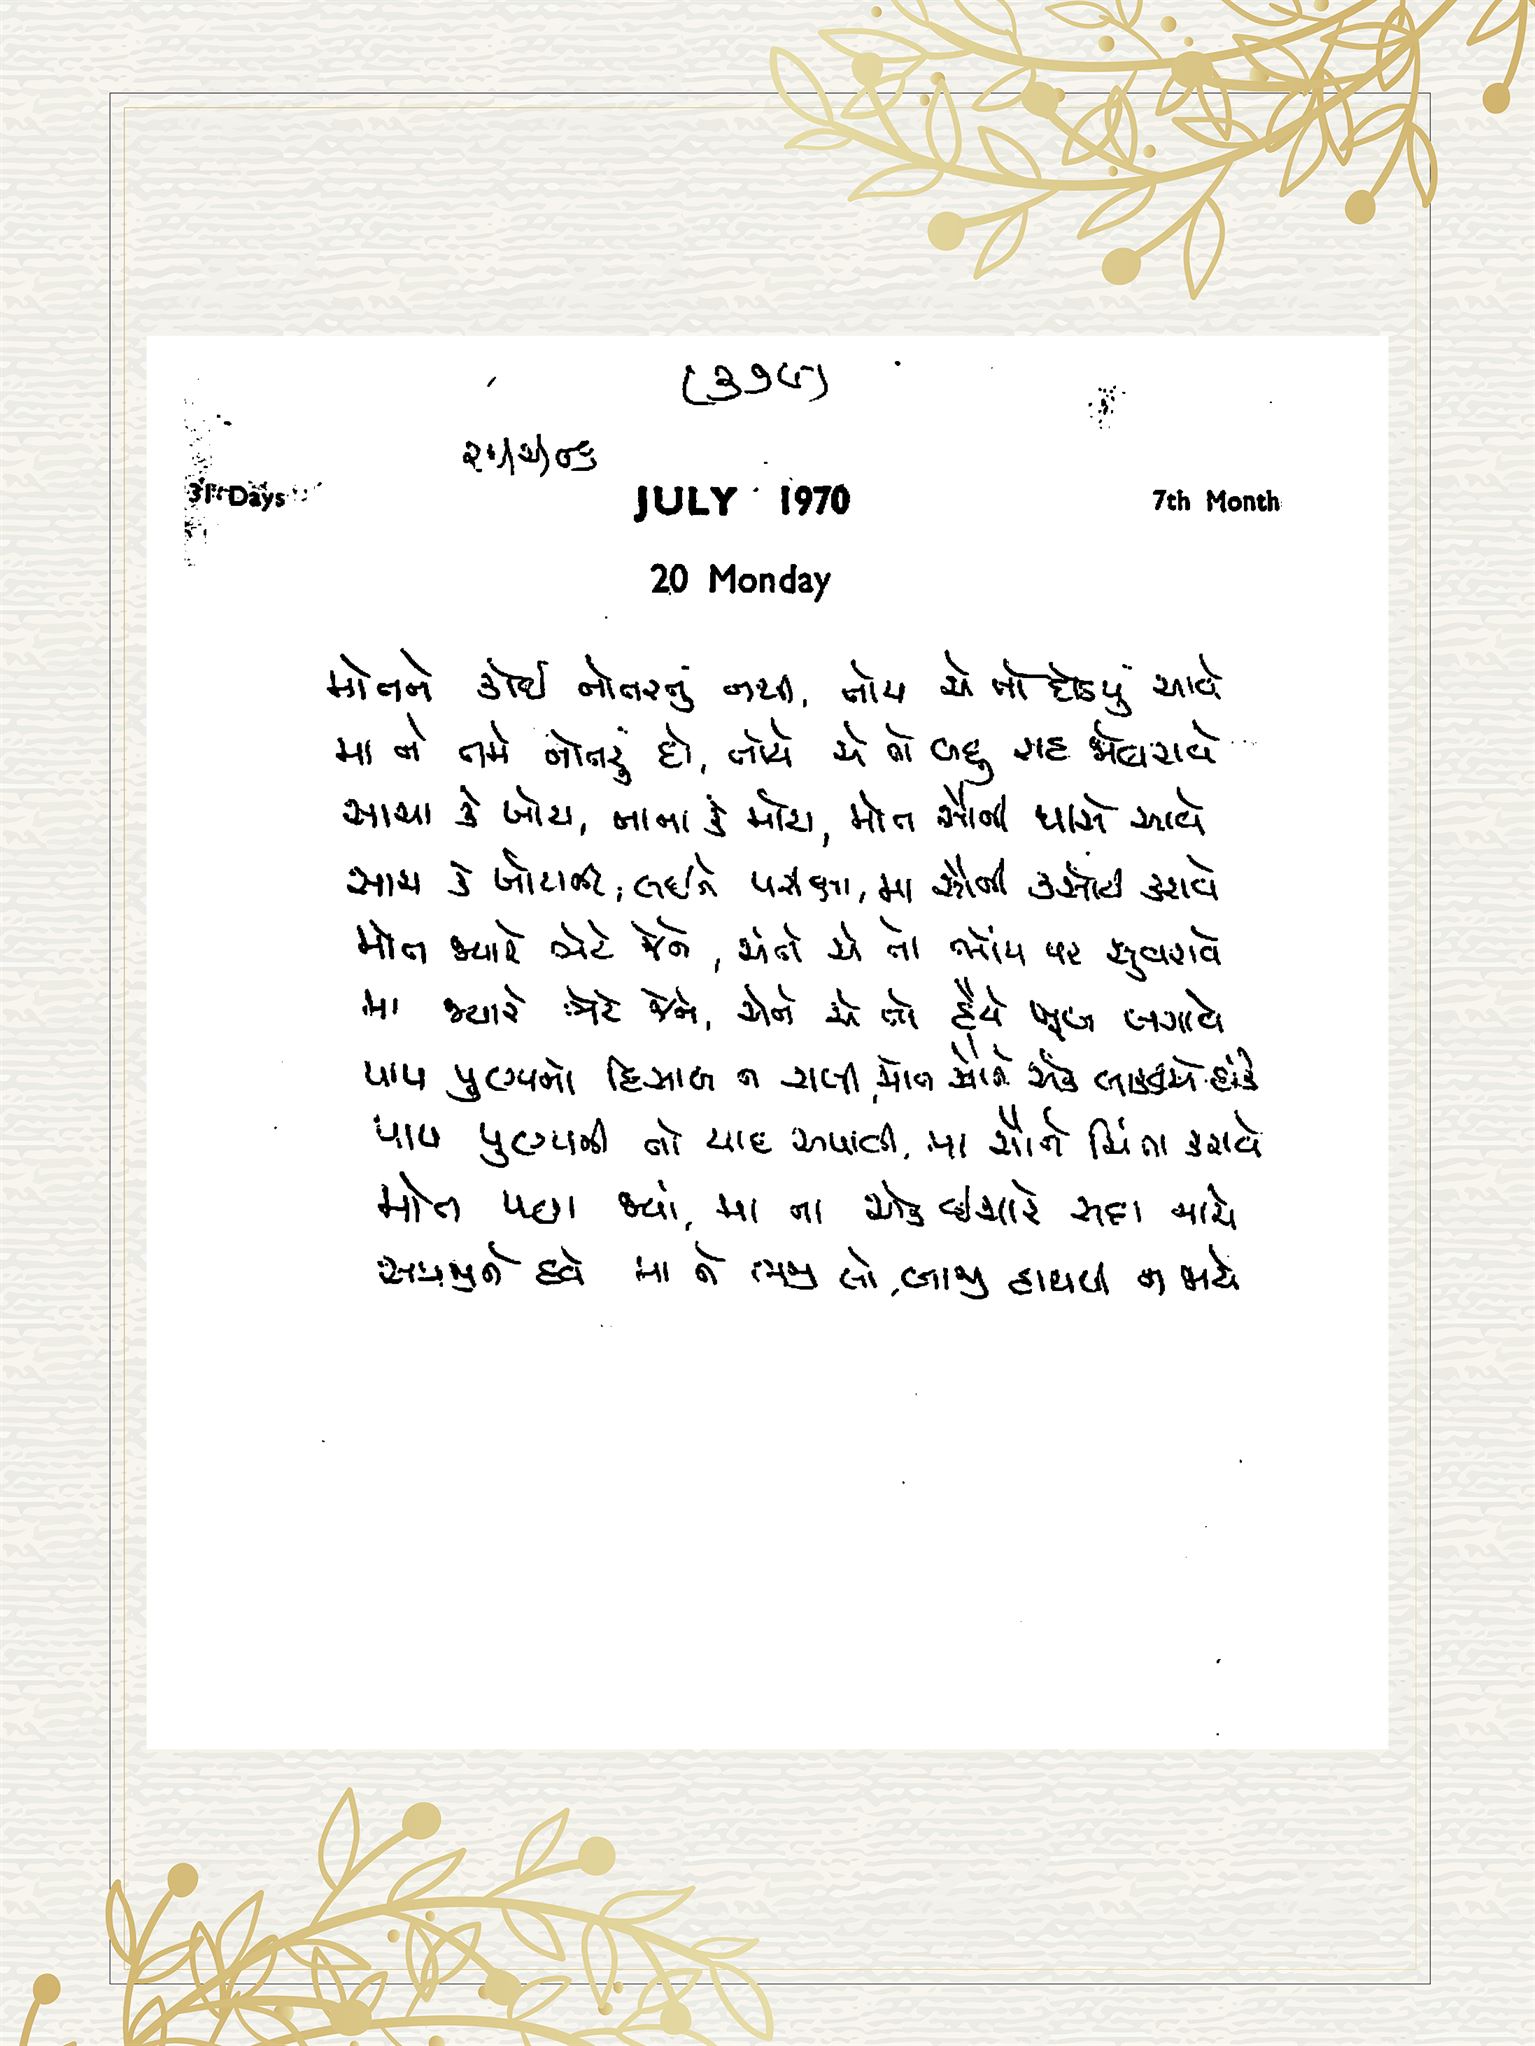 (૩૧૯)
૨૫/૭/૮૬
31 Days JULY 1970 7th Month
20 Monday
મોતને કોઈ નોતરતું નથી, તોય એ તો દોડયું આવે
મા ને તમે નોતરું દો, તોયે એ તો બહુ રાહ જોવરાવે
સાચા કે ખોટા, નાના કે મોટા, મોત સૌની પાસે આવે
સાચા કે ખોટાની, લઈને પરીક્ષા, મા સૌની કસોટી કરાવે
મોત જ્યારે ભેટે જેને, એને એ તો ભોંય પર સુવરાવે
મા જ્યારે ભેટે જેને, એને એ તો હૈયે ખૂબ લગાવે
પાપ પુણ્યનો હિસાબ ન રાખી, મોત સૌને એક લાકડીએ હાંકે
પાપ પુણ્યની તો યાદ અપાવી, મા સૌને ચિંતા કરાવે
મોત પણ જ્યાં, મા ના એક ઈશારે સદા નાચે
સમજીને હવે મા ને ભજી લો, બાજી હાથથી ન જાયે